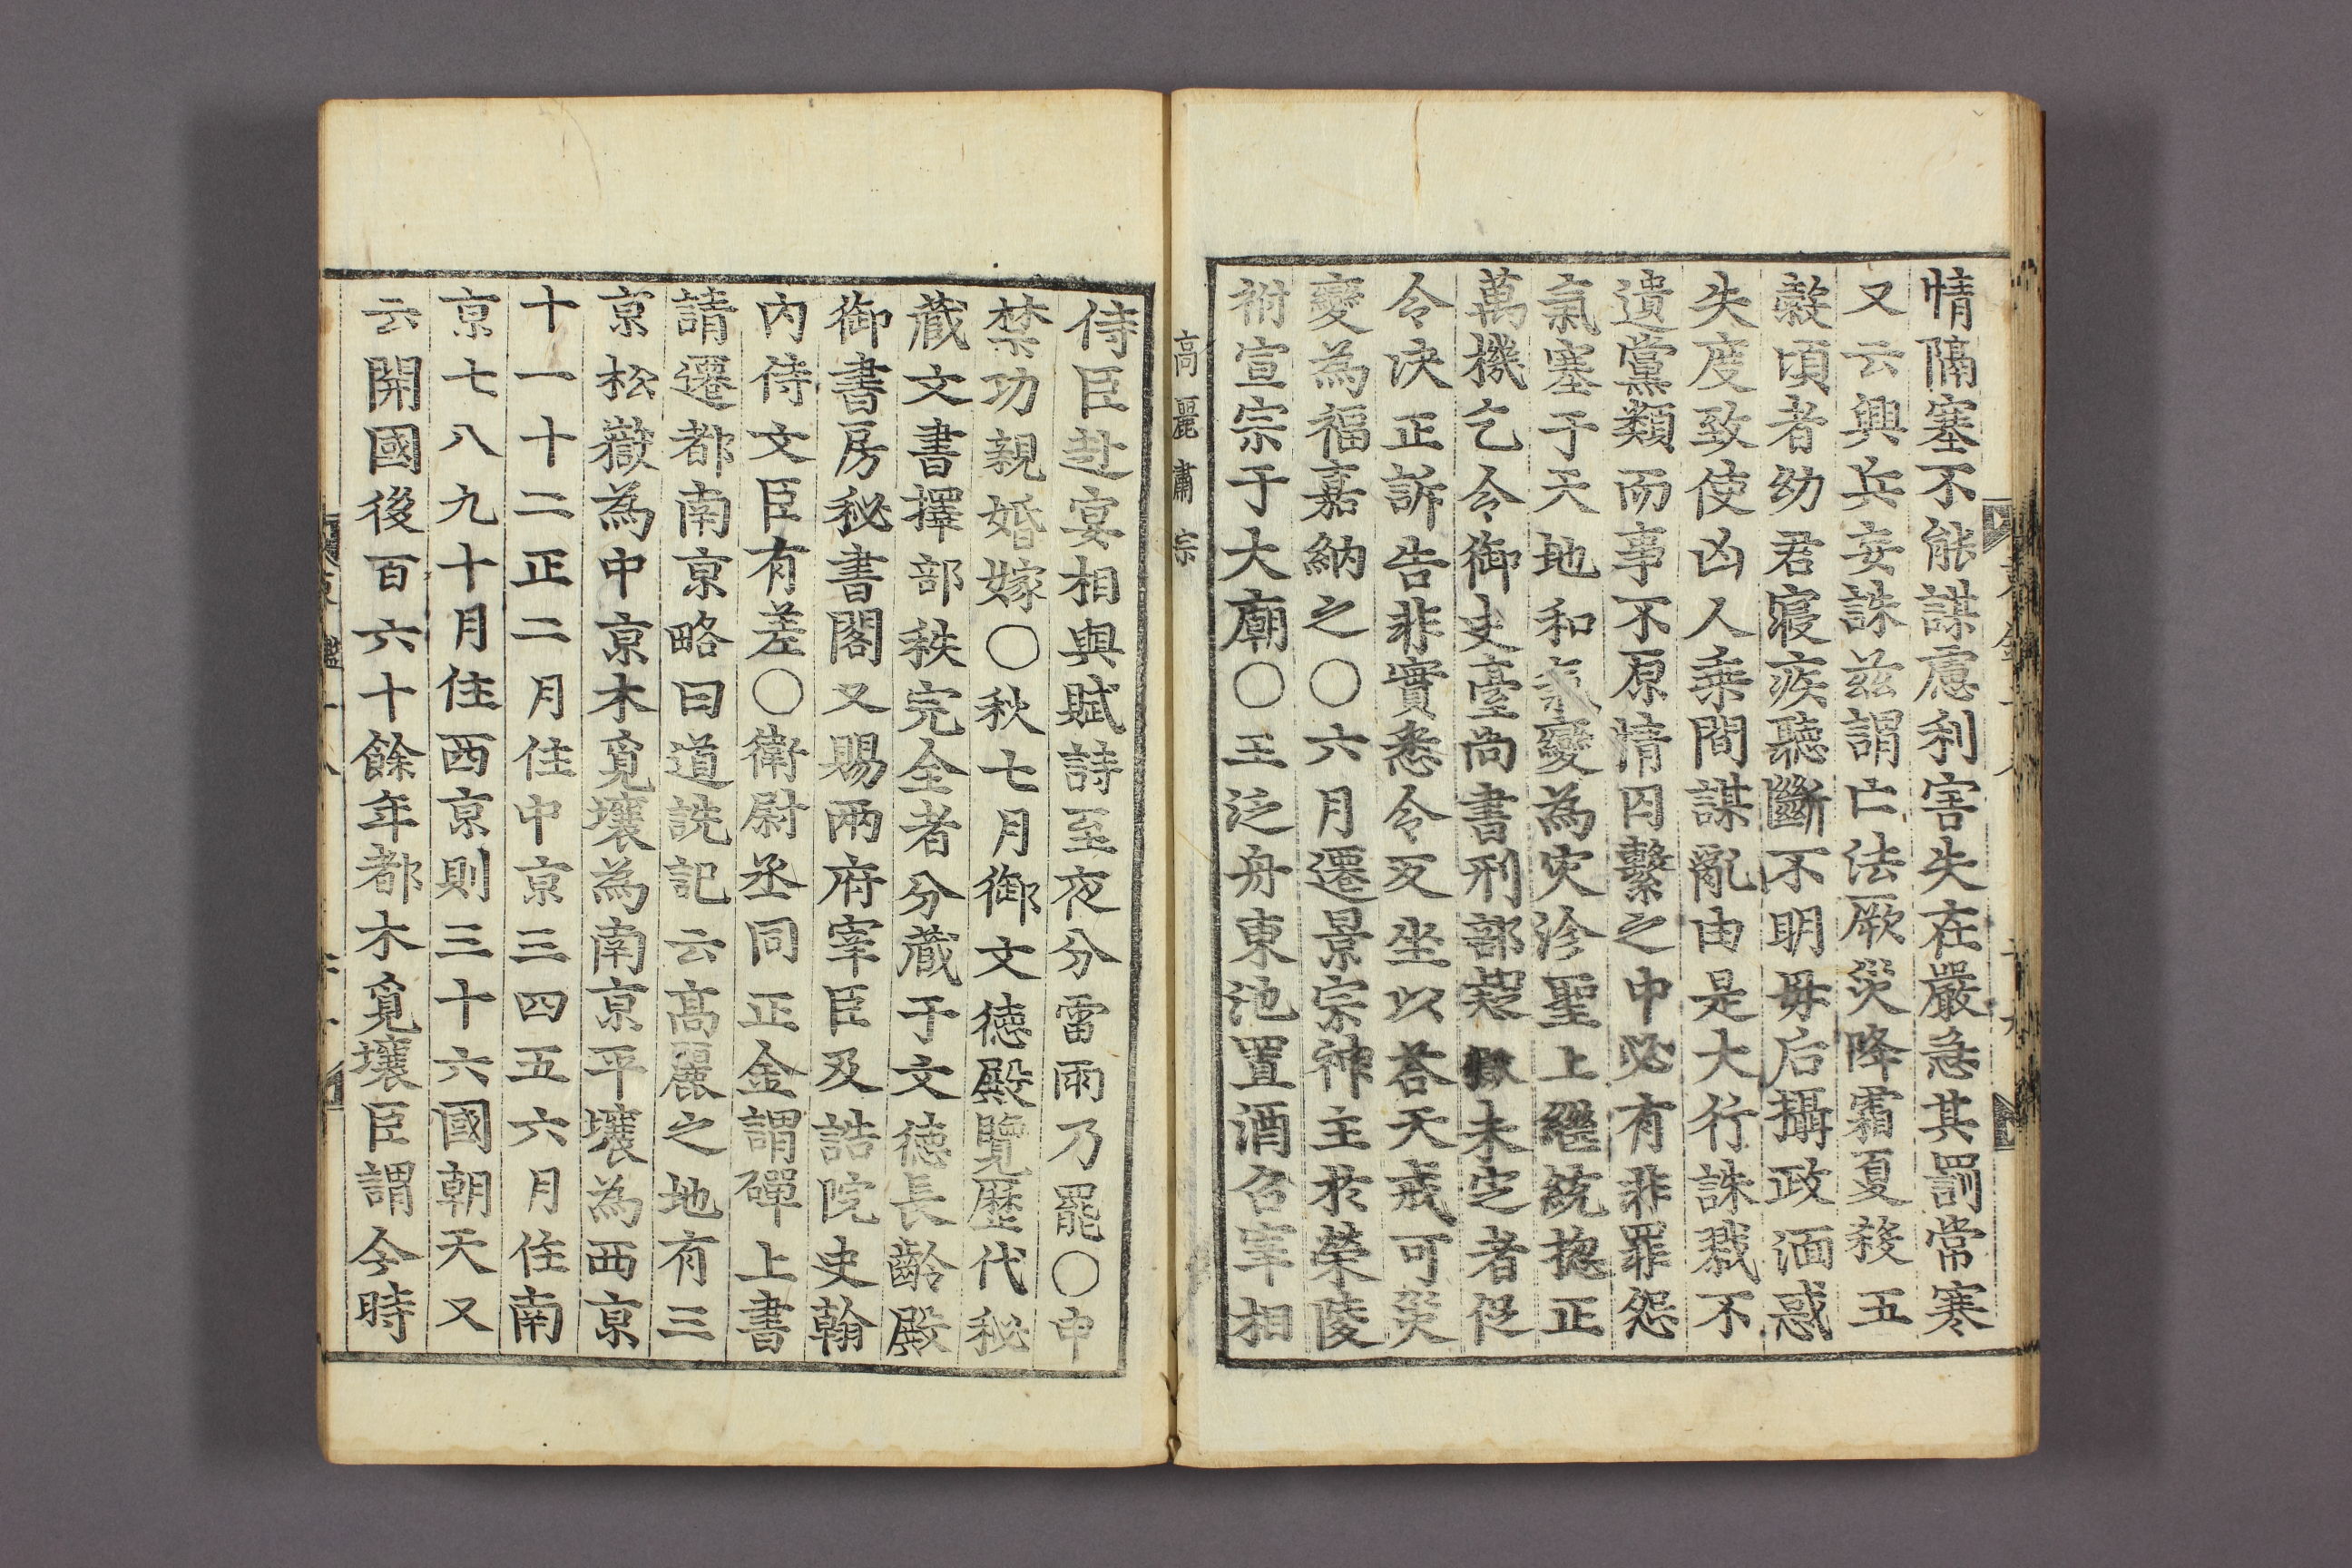 情隔塞不能謀慮利害失在嚴急其罰常寒
又云興兵妄誅玆謂亡法厥災降霜夏殺五
穀頃者幼君寢疾聽斷不明毋后攝政湎惑
失度致使凶人乗間謀亂由是大行誅戮不
遺黨類而事不原情囚繫之中必有非罪怨
氣塞于天地和氣變為灾沴聖上繼統揔正
萬機乞令御史臺尙書刑部獄未㝎者促
令决正訴告非實悉令反坐以荅天戒可災
變為福嘉納之〇六月遷景宗神主於榮陵
祔宣宗于大廟〇王泛舟東池置酒召宰相
高麗肅宗
侍臣赴宴相與賦詩至夜分雷雨乃罷〇申
禁功親婚嫁〇秋七月御文德殿覽歷代秘
藏文書擇部秩完全者分藏于文德長齡殿
御書房秘書閣又賜兩府宰臣及誥院史翰
內侍文臣有差〇衛尉丞同正金謂磾上書
請遷都南京略曰道詵記云高麗之地有三
京松嶽為中京木覓壤為南京平壤為西京
十一十二正二月住中京三四五六月住南
京七八九十月住西京則三十六國朝天又
云開國後百六十餘年都木覓壤臣謂今時